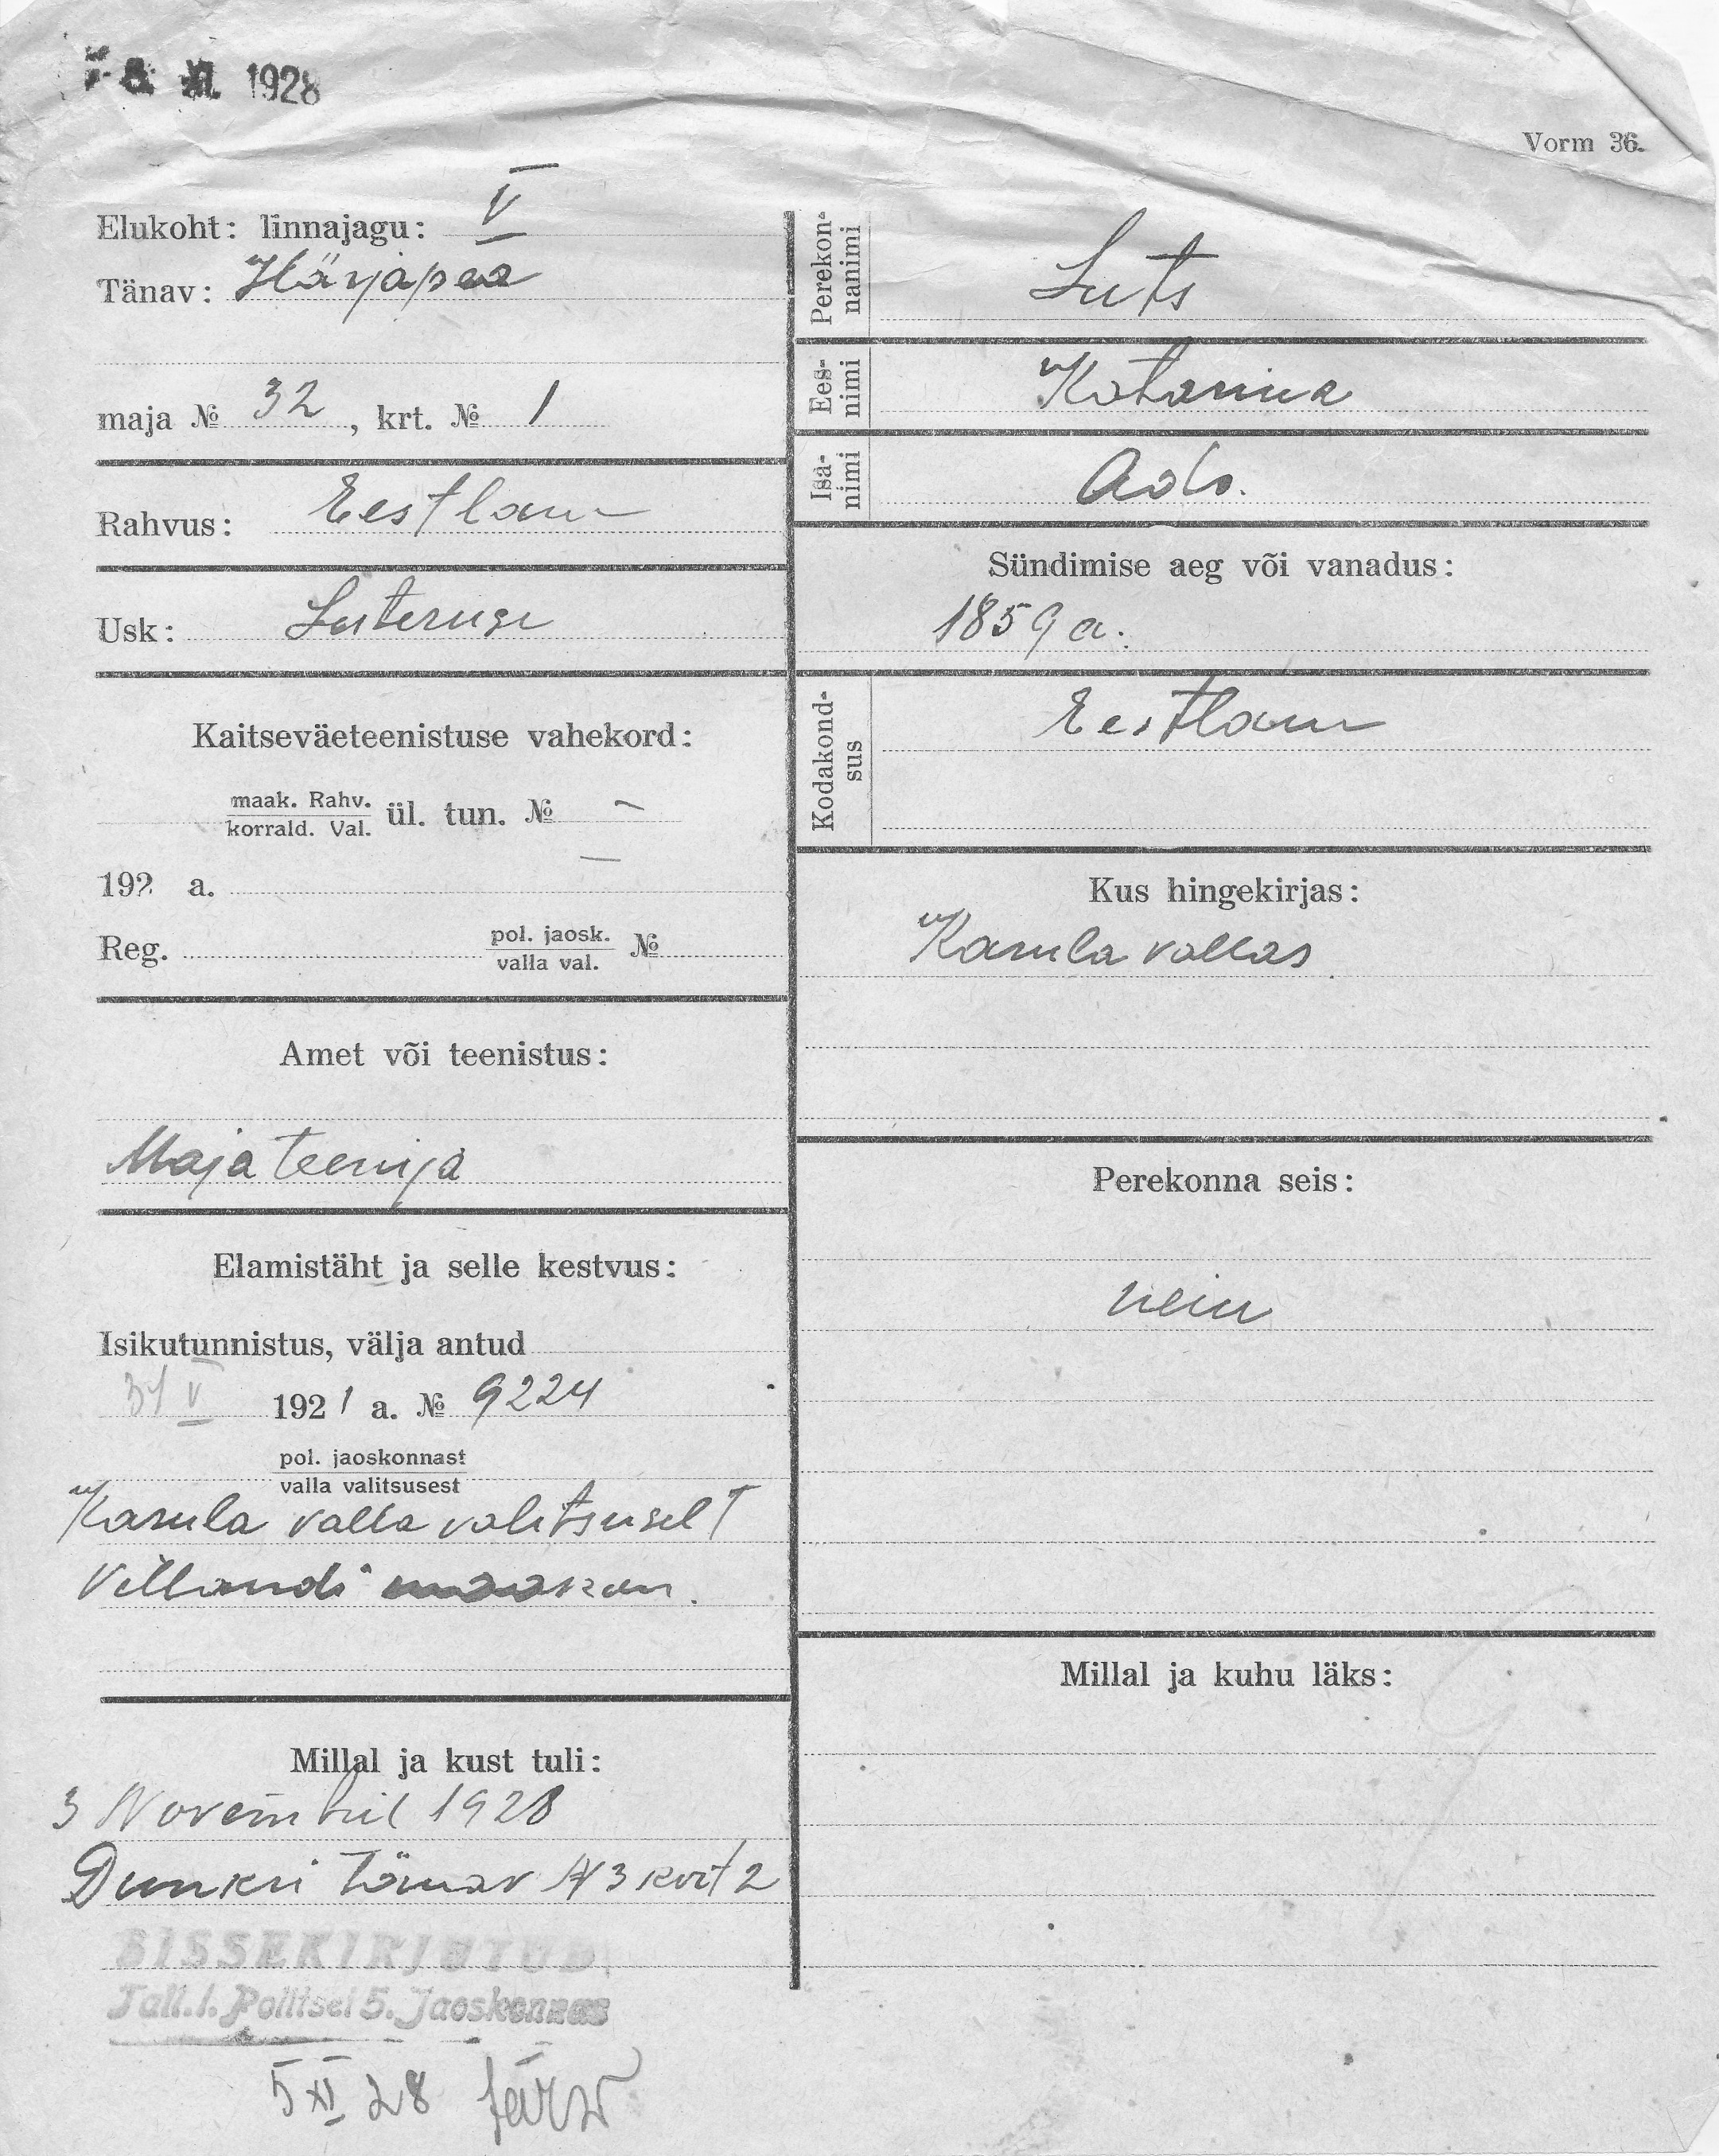 1928
Vorm 36.
Elukoht: linnajagu: V
Tänav: Härjapea
maja № 32, krt. № 1
Rahvus: Eestlane
Usk: Luterusu
Kaitseväeteenistuse vahekord:
maak. Rahv.
korrald. Val. ül. tun. № –
192 a. –
Reg. pol. jaosk.
valla val. №
Amet või teenistus:
Maja teenija
Elamistäht ja selle kestvus:
Isikutunnistus, välja antud
31 V 1921 a. № 9224
pol. jaoskonnast
valla valitsusest
Karula valla valitsuselt
Villandi maakon.
Millal ja kust tuli:
3 Novembril 1928
Dunkri tänav № 3 krt 2
SISSEKIRJUTUD
Tall. l. Politsei 5. Jaoskonnas
5 XI 28 Järw
Perekon-
nanimi Luts
Ees-
nimi Katarina
Isa-
nimi Ado.
Sündimise aeg või vanadus:
1859 a.
Kodakond-
sus Eestlane
Kus hingekirjas:
Karula vallas
Perekonna seis:
neiu
Millal ja kuhu läks: